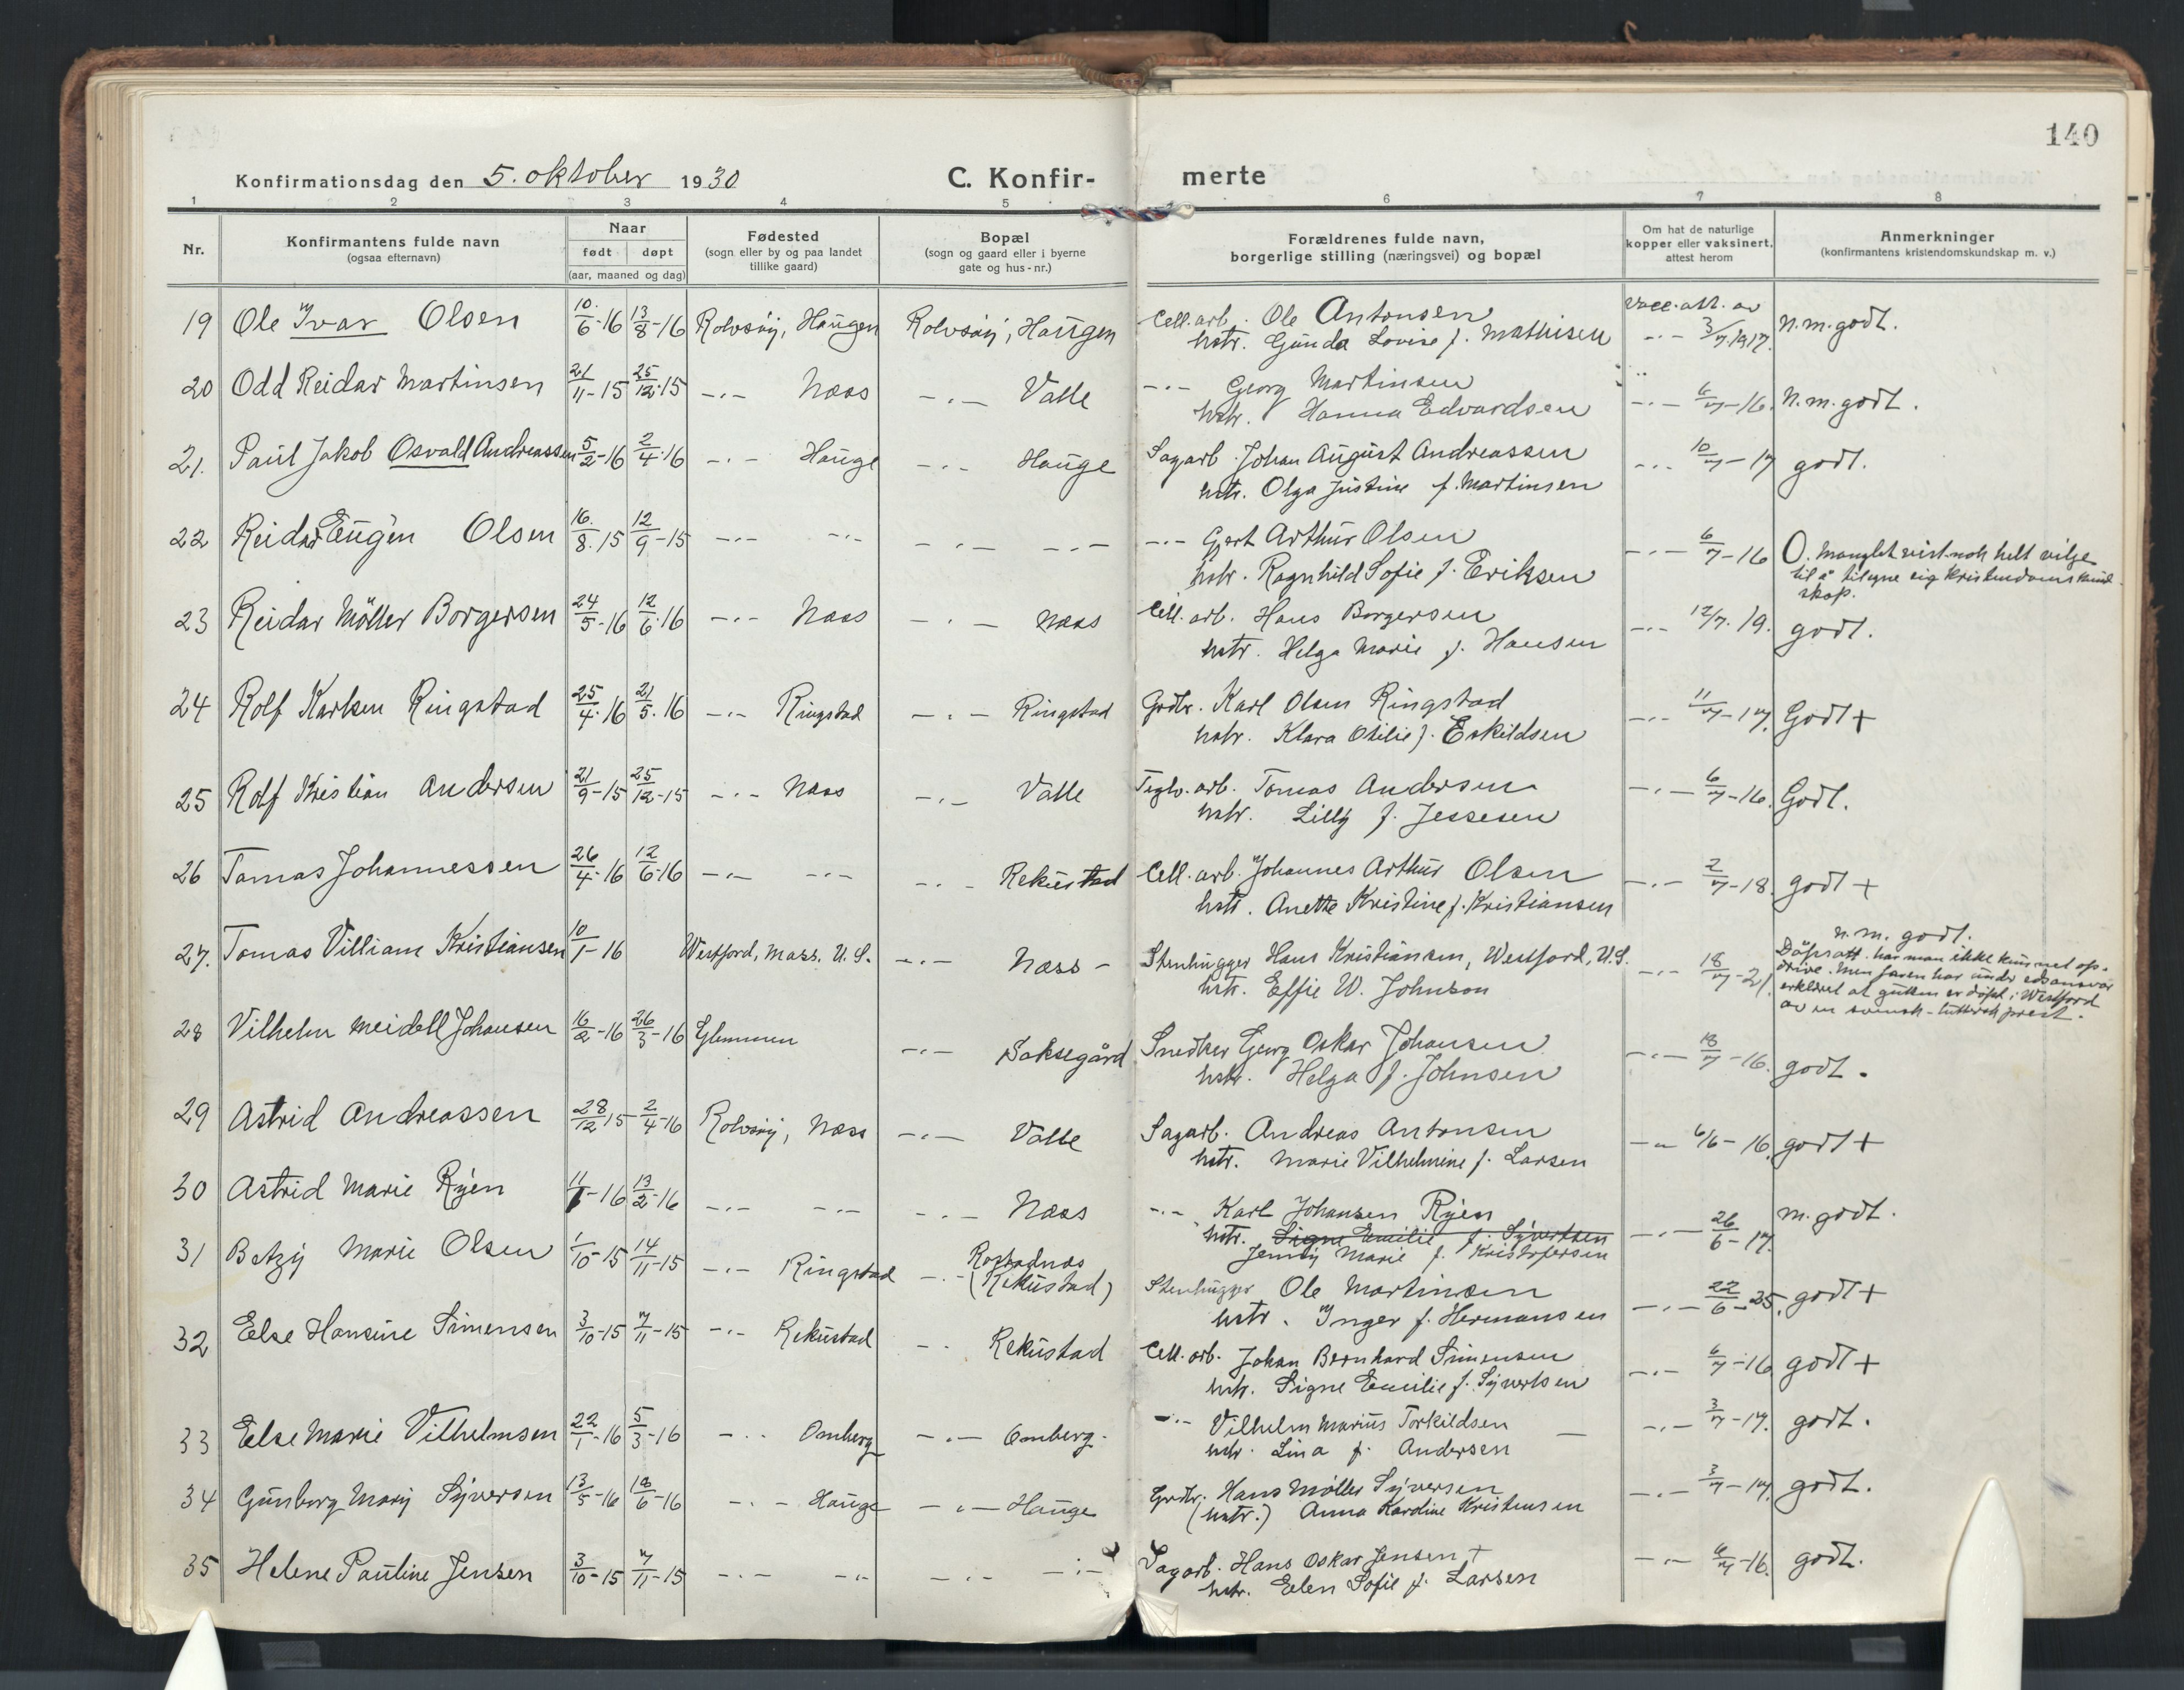 140
Konfirmationsdag den 5. oktober 1930
C. Konfir- merte
1 2 3 4 5 6 7 8
Nr.
Konfirmantens fulde navn
(ogsaa efternavn)
Naar
født døpt
(aar, maaned og dag)
Fødested
(sogn eller by og paa landet
tillike gaard)
Bopæl
(sogn og gaard eller i byerne
gate og hus-nr.)
Forældrenes fulde navn,
borgerlige stilling (næringsvei) og bopæl
Om hat de naturlige
kopper eller vaksinert,
attest herom
Anmerkninger
(konfirmantens kristendomskundskap m. v.)
19 Ole Ivar Olsen 10/6-16 13/8-16 Rolvsøy, Haugen Rolvsøy, Haugen Cell. arb. Ole Antonsen Vacc. att. av
hstr. Gunda Lovise f. Mathisen -.- 3/7 1917. n.m.godt.
20 Odd Reidar Martinsen 21/11-15 25/12-15 -.- Næss -.- Valle -.- Georg Martinsen
hstr. Hanna Edvardsen -.- 6/7-16. n.m.godt.
21. Paul Jakob Osvald Andreassen 5/2-16 2/4-16 -.- Hauge -.- Hauge Sagarb. Johan August Andreassen -.- 10/7-17 godt.
hstr. Olga Justine f. Martinsen
22 Reidar Eugen Olsen 16/8-15 12/9-15 -.- -.- -.- -.- -.- Gert Arthur Olsen -.- 6/7-16 O. Manglet visst-nok helt vilje
hstr. Ragnhild Sofie f. Eriksen til å tilegne sig kristendomskund-
skap.
23 Reidar Möller Borgersen 24/5-16 12/6-16 -.- Næss -.- Næss Cell. arb. Hans Borgersen
hstr. Helga Marie f. Hansen -.- 12/7-19. godt.
24 Rolf Karlsen Ringstad 25/4-16 21/5-16 -.- Ringstad -.- Ringstad Grdbr. Karl Olsen Ringstad -.- 11/7-17. Godt +
hstr. Klara Otilie f. Eskildsen
25 Rolf Kristian Andersen 21/9-15 25/12-15 -.- Næss -.- Valle Teglv. arb. Tomas Andersen -.- 6/7-16. Godt.
hstr. Lilly f. Jessesen
26 Tomas Johannessen 26/4-16 12/6-16 -.- -.- -.- Rekustad Cell. arb. Johannes Arthur Olsen -.- 2/7-18. godt +
hstr. Anette Kristine f. Kristiansen
27. Tomas Villiam Kristiansen 10/1-16 Westford, Mass. U.S. -.- Næss - Stenhugger Hans Kristiansen, Westford, U.S. -.- 18/7-21.
hstr. Effie W. Johnson
n.m. godt.
Döpsatt. har man ikke kunnet op-
drive. Men faren har under edsansvar
erklæret at gutten er döpt i Westford
av en svensk-luthersk prest.
28 Vilhelm Meidell Johansen 16/2-16 26/3-16 Glemmen -.- Saksegård Snedker Georg Oskar Johansen -.- 18/7-16. godt.
hstr. Helga f. Johnsen
29 Astrid Andreassen 28/12-15 2/4-16 Rolvsøy, Næss -.- Valle Sagarb. Andreas Antonsen -.- 6/6-16. godt +
hstr. Marie Vilhelmine f. Larsen
30 Astrid Marie Ryen 11/1-16 13/2-16 -.- -.- -.- Næss -.- Karl Johansen Ryen -.- 26/6-17. m.godt.
hstr. Signe Emilie f. Syvertsen
Jenny Marie f. Kristofersen
31 Betzy Marie Olsen 1/10-15 14/11-15 -.- Ringstad -.- Rostadnæs
(Rekustad) Stenhugger Ole Martinsen -.- 22/6-25. godt +
hstr. Inger f. Hermansen
32 Else Hansine Simensen 3/10-15 7/11-15 -.- Rekustad -.- Rekustad Cell. arb. Johan Bernhard Simensen -.- 6/7-16 godt +
hstr. Signe Emilie f. Syvertsen
33 Else Marie Vilhelmsen 22/1-16 5/3-16 -.- Omberg -.- Omberg. -.- Vilhelm Marius Torkildsen -.- 3/7-17. godt.
hstr. Lina f. Andersen
34 Gunborg Mary Syversen 13/5-16 18/6-16 -.- Hauge -.- Hauge Grdbr. Hans Møller Syversen -.- 3/7-17. godt.
(hstr.) Anna Kardine Kristensen
35 Helene Pauline Jensen 3/10-15 7/11-15 -.- -.- -.- -.- Sagarb. Hans Oskar Jensen + -.- 6/7-16. godt.
hstr. Elen Sofie f. Larsen